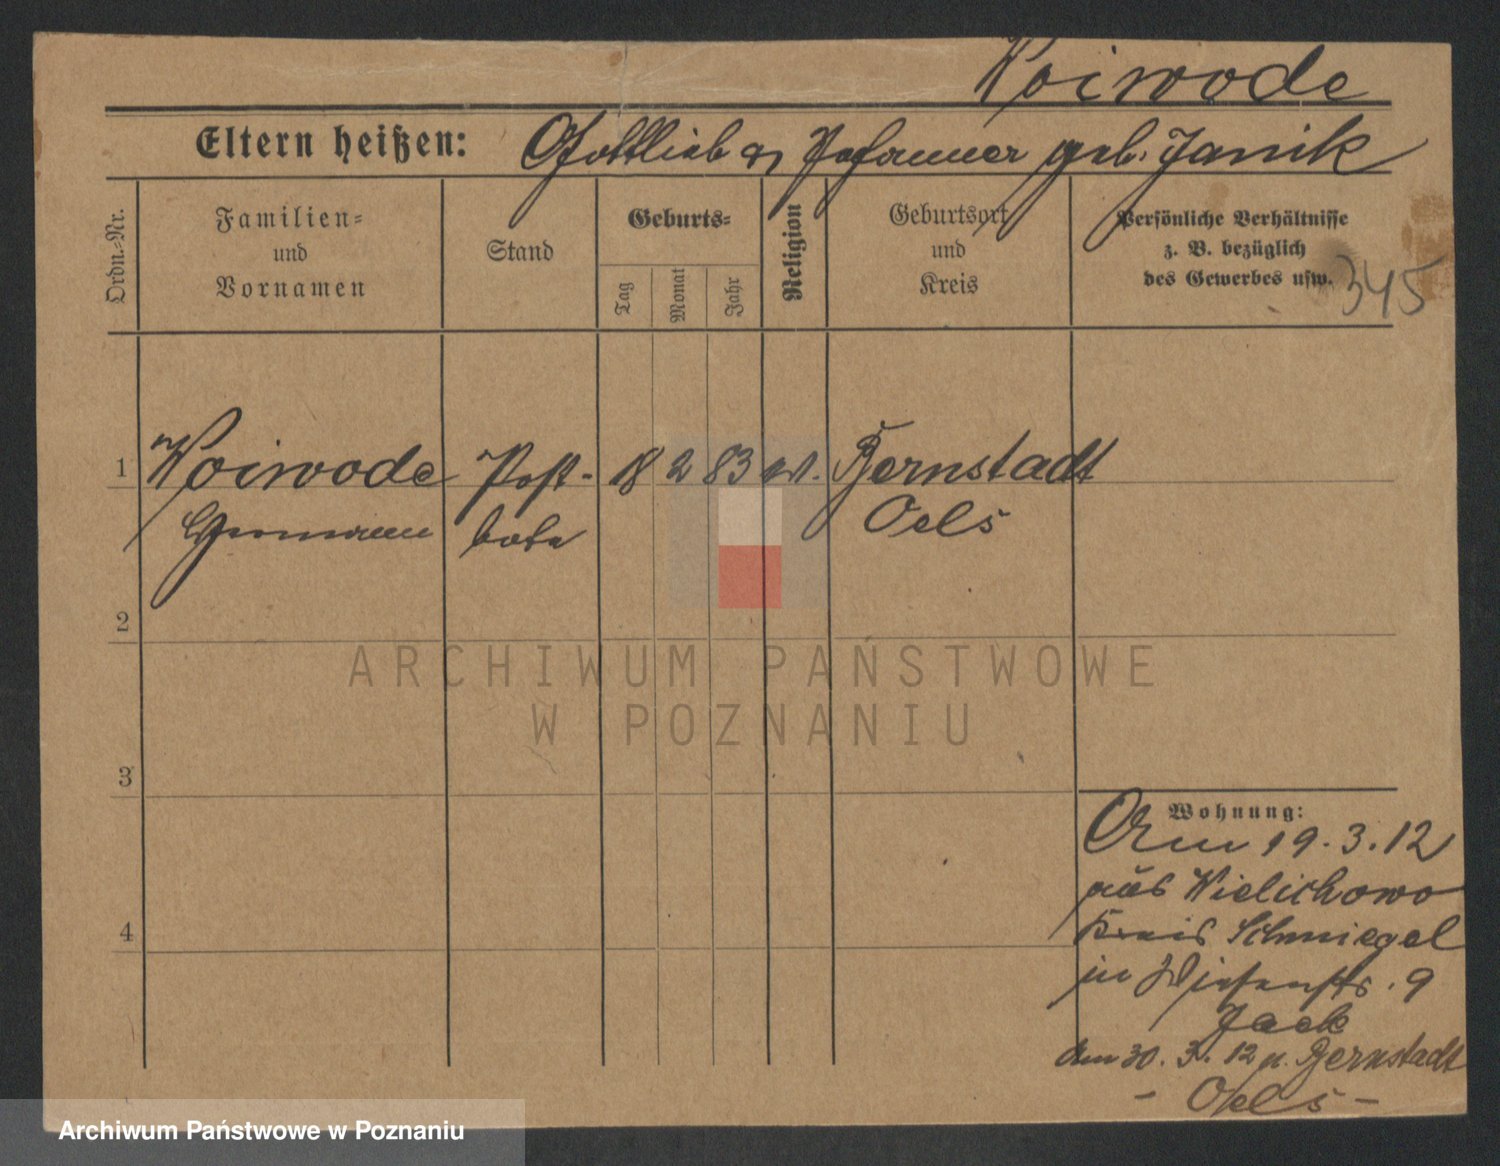 Woiwode
Eltern heißen: Gottlieb & Johanne geb. Janik
Ordn.-Nr.
Familien-
und
Vornamen
Stand
Geburts-
Tag
Monat
Jahr
Religion
Geburtsort
und
Kreis
Persönliche Verhältnisse
z. B. bezüglich
des Gewerbes usw.
345
1 Woiwode Post- 18 2 83 ev. Bernstadt
Hermann bote Oels
2
3
4
ARCHIWUM PAŃSTWOWE
W POZNANIU
Wohnung:
Am 19.3.12
aus Wielichowo
Kreis Schmiegel
in Wiesenstr. 9
Jack
Am 30.3.12 n. Bernstadt
- Oels -
Archiwum Państwowe w Poznaniu